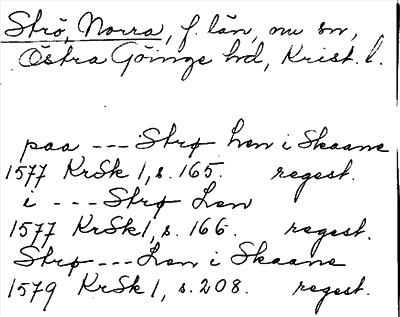 Strö, Norra, f. län, nu sn,
Östra Göinge hd, Krist. l.
paa --- Strø Len i Skaane
1577 KrSk 1, s. 165. regest.
i --- Strø Len
1577 KrSk 1, s. 166. regest.
Strø --- Len i Skaane
1579 KrSk 1, s. 208. regest.